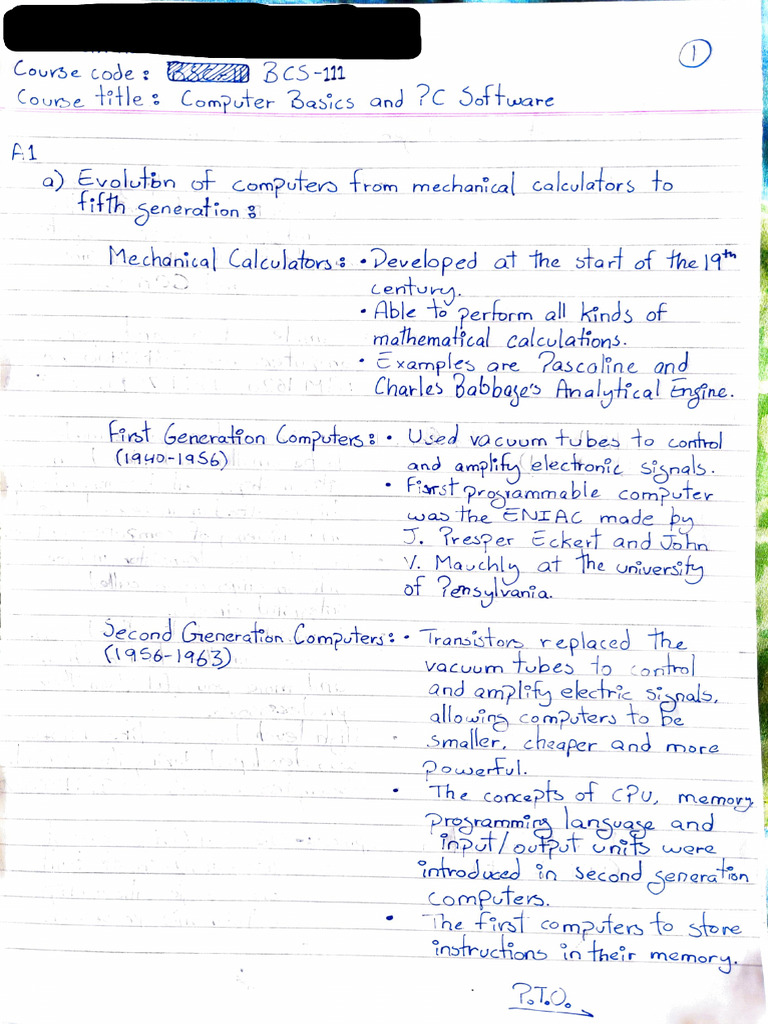 1
Course code: BCS-111
Course title: Computer Basics and PC Software
A.1
a) Evolution of computers from mechanical calculators to
fifth generation:
Mechanical Calculators: • Developed at the start of the 19th
century.
• Able to perform all kinds of
mathematical calculations.
• Examples are Pascaline and
Charles Babbage's Analytical Engine.
First Generation Computers: • Used vacuum tubes to control
(1940-1956)
and amplify electronic signals.
• First programmable computer
was the ENIAC made by
J. Presper Eckert and John
V. Mauchly at the university
of Pensylvania.
Second Generation Computers: • Transistors replaced the
(1956-1963)
vacuum tubes to control
and amplify electric signals,
allowing computers to be
smaller, cheaper and more
powerful.
• The concepts of CPU, memory,
programming language and
input/output units were
introduced in second generation
computers.
• The first computers to store
instructions in their memory.
P.T.O.